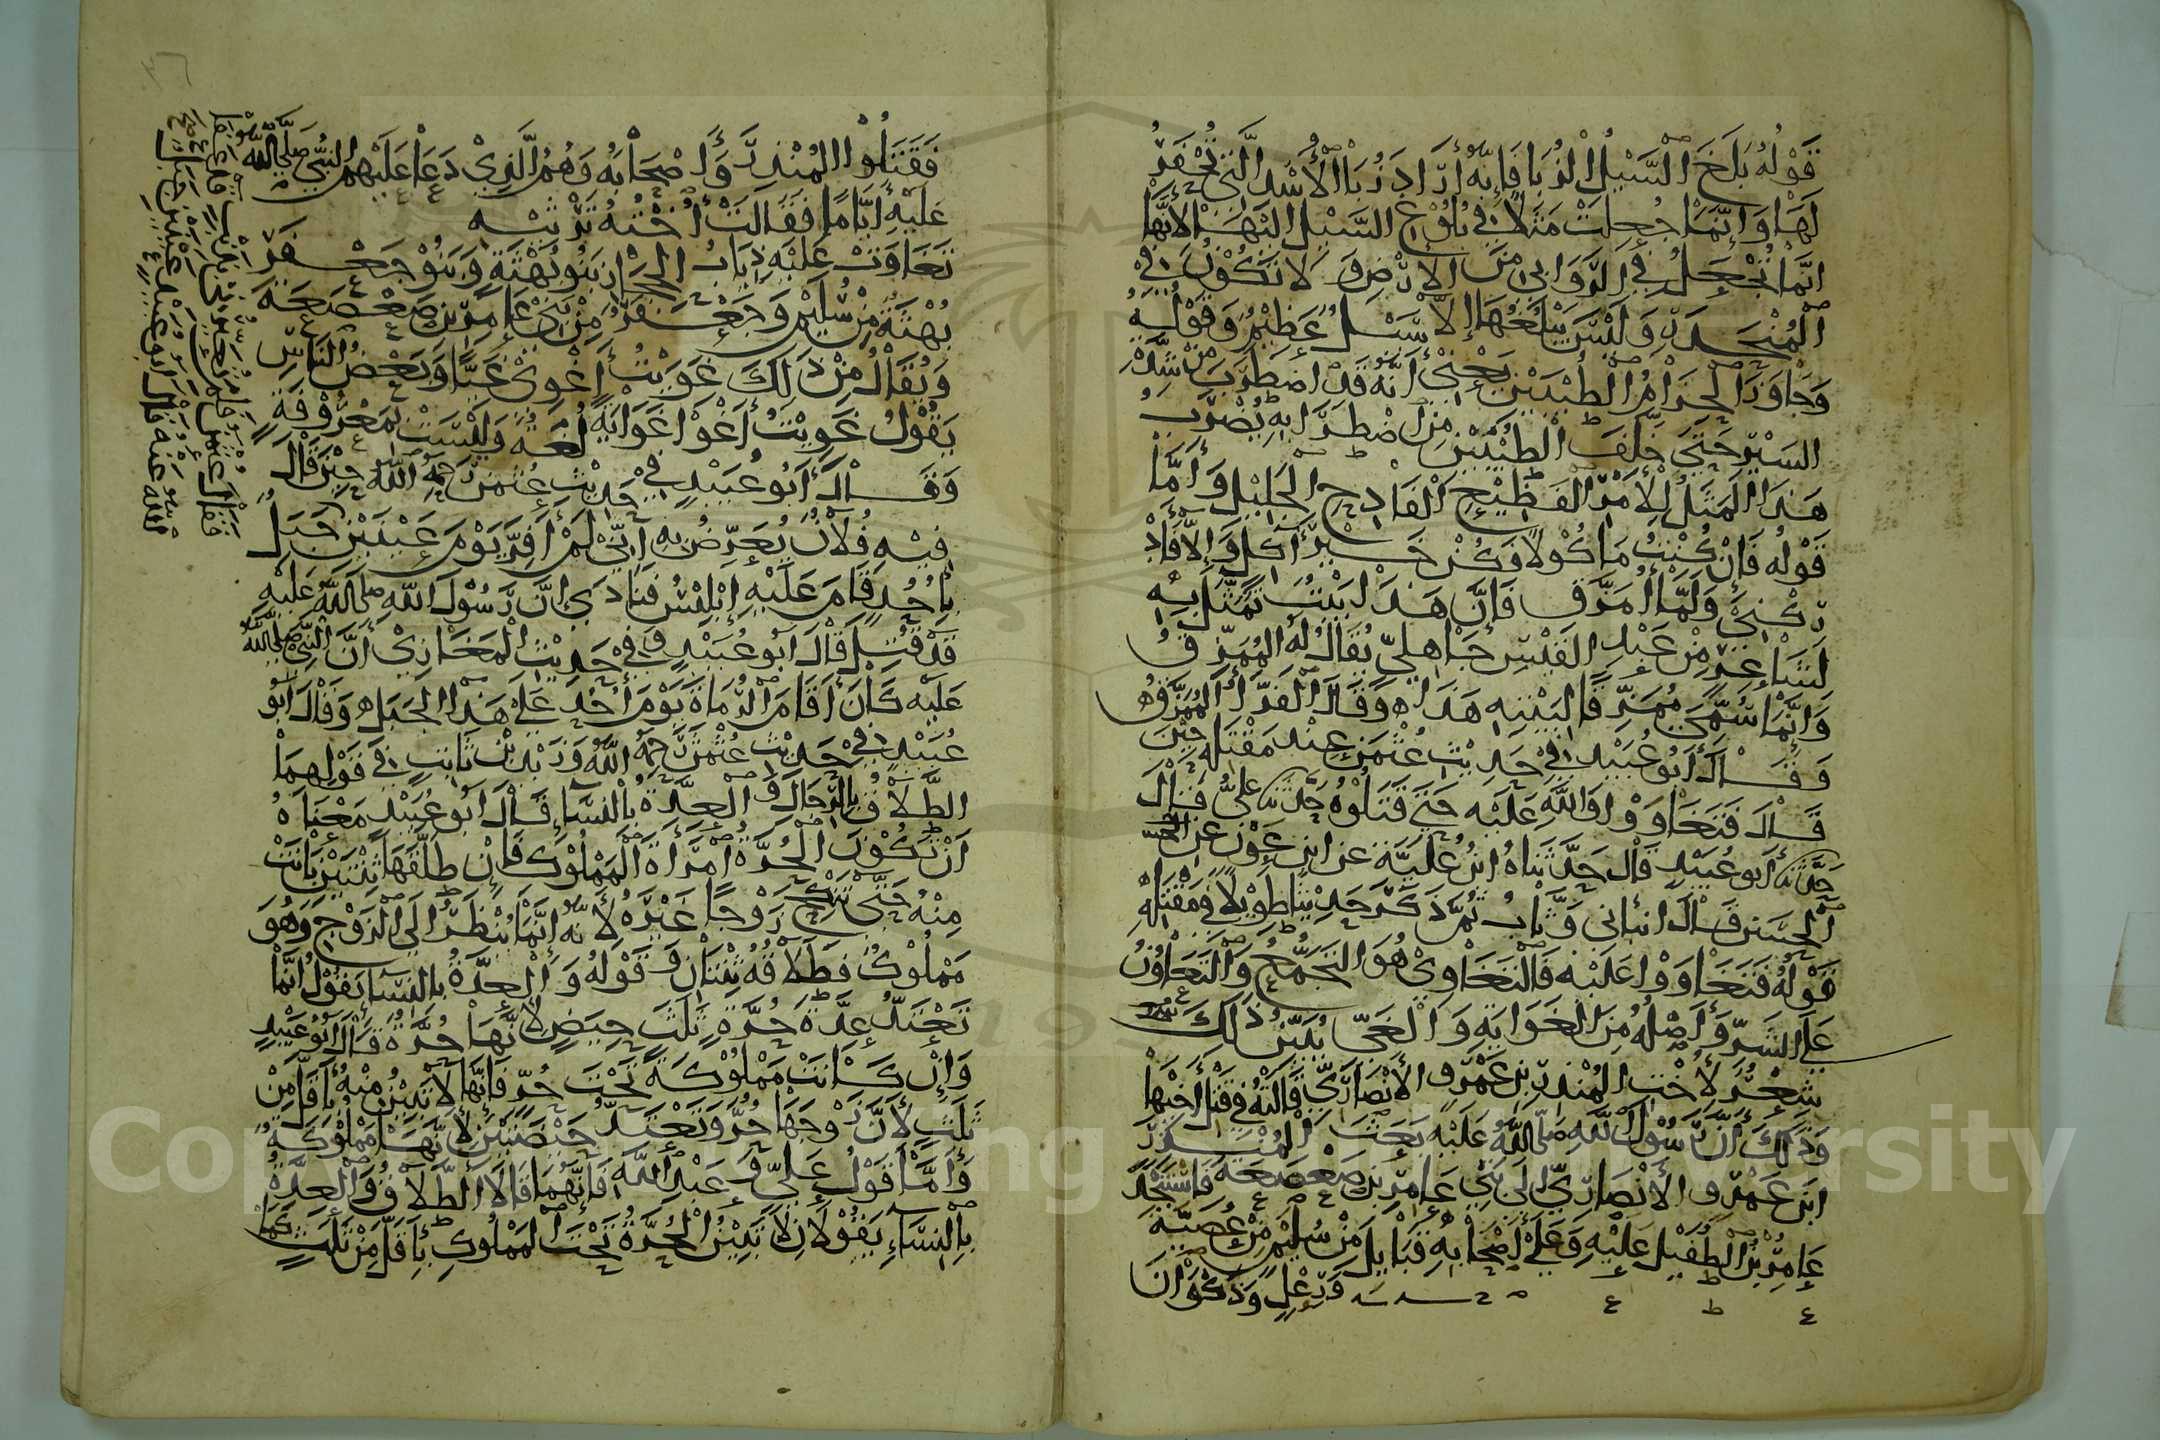 قَوْلُهُ بَلَغَ السَّيْلُ الزُّبَا فَإِنَّهُ أَرَادَ زُبَا الْأُسْدِ الَّتِي تُحْفَرُ
لَهَا وَإِنَّمَا جُعِلَتْ مَثَلًا فِي بُلُوغِ السَّيْلِ إِلَيْهَا لِأَنَّهَا
إِنَّمَا تُجْعَلُ فِي الرَّوَابِي مِنَ الْأَرْضِ وَلَا تَكُونُ فِي
الْمُنْحَدَرِ وَلَيْسَ يَبْلُغُهَا إِلَّا سَيْلٌ عَظِيمٌ وَقَوْلُهُ
وَجَاوَزَ الْحِزَامُ الطُّبْيَيْنِ يَعْنِي أَنَّهُ قَدِ اضْطَرَبَ مِنْ شِدَّةِ
السَّيْرِ حَتَّى خَلَفَ الطُّبْيَيْنِ مِنِ اضْطِرَابِهِ يُضْرَبُ
هَذَا الْمَثَلُ لِلْأَمْرِ الْفَظِيعِ الْفَادِحِ الْجَلِيلِ وَأَمَّا
قَوْلُهُ فَإِنْ كُنْتُ مَأْكُولًا فَكُنْ خَيْرَ آكِلٍ وَإِلَّا فَأَدْ
رِكْنِي وَلَمَّا أُمَزَّقِ فَإِنَّ هَذَا بَيْتٌ تَمَثَّلَ بِهِ
لِشَاعِرٍ مِنْ عَبْدِ الْقَيْسِ جَاهِلِيٍّ يُقَالُ لَهُ الْمُمَزَّقُ
وَإِنَّمَا سُمِّيَ مُمَزَّقًا لِبَيْتِهِ هَذَا وَقَالَ الْفَرَّاءُ الْمُمَزَّقُ
وَقَالَ أَبُو عُبَيْدٍ فِي حَدِيثِ عُثْمَنَ عِنْدَ مَقْتَلِهِ حِينَ
قَالَ فَتَغَاوَوْا وَاللَّهِ عَلَيْهِ حَتَّى قَتَلُوهُ حَدَّثَنَا عَلِيٌّ قَالَ
حَدَّثَنَا أَبُو عُبَيْدٍ قَالَ حَدَّثَنَاهُ ابْنُ عُلَيَّةَ عَنِ ابْنِ عَوْنٍ عَنِ
الْحَسَنِ قَالَ أنبأني وَثَّابٌ ثُمَّ ذَكَرَ حَدِيثًا طَوِيلًا فِي مَقْتَلِهِ
قَوْلُهُ فَتَغَاوَوْا عَلَيْهِ فَالتَّغَاوِي هُوَ التَّجَمُّعُ وَالتَّعَاوُنُ
عَلَى الشَّرِّ وَأَصْلُهُ مِنَ الْغَوَايَةِ وَالْغَيِّ يُبَيِّنُ ذَلِكَ
شِعْرٌ لِأُخْتِ الْمُنْذِرِ بْنِ عَمْرٍو الْأَنْصَارِيِّ قَالَتْهُ فِي قَتْلِ أَخِيهَا
وَذَلِكَ أَنَّ رَسُولَ اللَّهِ صَلَّى اللَّهُ عَلَيْهِ بَعَثَ الْمُنْذِرَ
ابْنَ عَمْرٍو الْأَنْصَارِيَّ إِلَى بَنِي عَامِرِ بْنِ صَعْصَعَةَ فَاسْتَنْجَدَ
عَامِرُ بْنُ الطُّفَيْلِ عَلَيْهِ وَعَلَى أَصْحَابِهِ قَبَائِلَ مِنْ سُلَيْمٍ مِنْ عُصَيَّةَ
وَرِعْلٍ وَذَكْوَانَ
فَقَتَلُوا الْمُنْذِرَ وَأَصْحَابَهُ وَهُمُ الَّذِي دَعَا عَلَيْهِمُ النَّبِيُّ صَلَّى اللَّهُ
عَلَيْهِ أَيَّامًا فَقَالَتْ أُخْتُهُ تَرْثِيهِ
تَغَاوَتْ عَلَيْهِ ذِيَابُ الْحِجَازِ بَنُو بُهْثَةٍ وَبَنُو جَعْفَرِ
بُهْثَةُ مِنْ سُلَيْمٍ وَجَعْفَرُ مِنْ بَنِي عَامِرِ بْنِ صَعْصَعَةَ
وَيُقَالُ مِنْ ذَلِكَ غَوَيْتُ أَغْوِي غَيًّا وَبَعْضُ النَّاسِ
يَقُولُ غَوِيتُ أَغْوَا غَوَايَةً لُغَةٌ وَلَيْسَتْ بِمَعْرُوفَةٍ
وَقَالَ أَبُو عُبَيْدٍ فِي حَدِيثِ عُثْمَنَ رَحِمَهُ اللَّهُ حِينَ قَالَ
فِيهِ فُلَانٌ يُعَرِّضُ بِهِ إِنِّي لَمْ أَفِرَّ يَوْمَ عَيْنَيْنِ جَبَلٌ
بِأُحُدٍ قَامَ عَلَيْهِ إِبْلِيسُ فَنَادَى إِنَّ رَسُولَ اللَّهِ صَلَّى اللَّهُ عَلَيْهِ
قَدْ قُتِلَ قَالَ أَبُو عُبَيْدٍ وَفِي حَدِيثِ الْمَغَازِي أَنَّ النَّبِيَّ صَلَّى اللَّهُ
عَلَيْهِ كَانَ أَقَامَ الرُّمَاةَ يَوْمَ أُحُدٍ عَلَى هَذَا الْجَبَلِ وَقَالَ أَبُو
عُبَيْدٍ فِي حَدِيثِ عُثْمَنَ رَحِمَهُ اللَّهُ وَزَيْدِ بْنِ ثَابِتٍ فِي قَوْلِهِمَا
الطَّلَاقُ بِالرِّجَالِ وَالْعِدَّةُ بِالنِّسَاءِ قَالَ أَبُو عُبَيْدٍ مَعْنَاهُ
أَنْ تَكُونَ الْحُرَّةُ امْرَأَةَ الْمَمْلُوكِ فَإِنْ طَلَّقَهَا ثِنْتَيْنِ بَانَتْ
مِنْهُ حَتَّى تَنْكِحَ زَوْجًا غَيْرَهُ لِأَنَّهُ إِنَّمَا يُنْظَرُ إِلَى الزَّوْجِ وَهُوَ
مَمْلُوكٌ فَطَلَاقُهُ ثِنْتَانِ وَقَوْلُهُ وَالْعِدَّةُ بِالنِّسَاءِ يَقُولُ إِنَّمَا
تَعْتَدُّ عِدَّةَ حُرَّةٍ ثَلَثَ حِيَضٍ لِأَنَّهَا حُرَّةٌ قَالَ أَبُو عُبَيْدٍ
وَإِنْ كَانَتْ مَمْلُوكَةً تَحْتَ حُرٍّ فَإِنَّهَا لَا تَبِينُ مِنْهُ بِأَقَلَّ مِنْ
ثَلَثٍ لِأَنَّ زَوْجَهَا حُرٌّ وَتَعْتَدُّ حَيْضَتَيْنِ لِأَنَّهَا مَمْلُوكَةٌ
وَأَمَّا قَوْلُ عَلِيٍّ وَعَبْدِ اللَّهِ فَإِنَّهُمَا قَالَا الطَّلَاقُ وَالْعِدَّةُ
بِالنِّسَاءِ يَقُولَانِ لَا تَبِينُ الْحُرَّةُ تَحْتَ الْمَمْلُوكِ بِأَقَلَّ مِنْ ثَلَثٍ كَمَا
Copyright © King Saud University